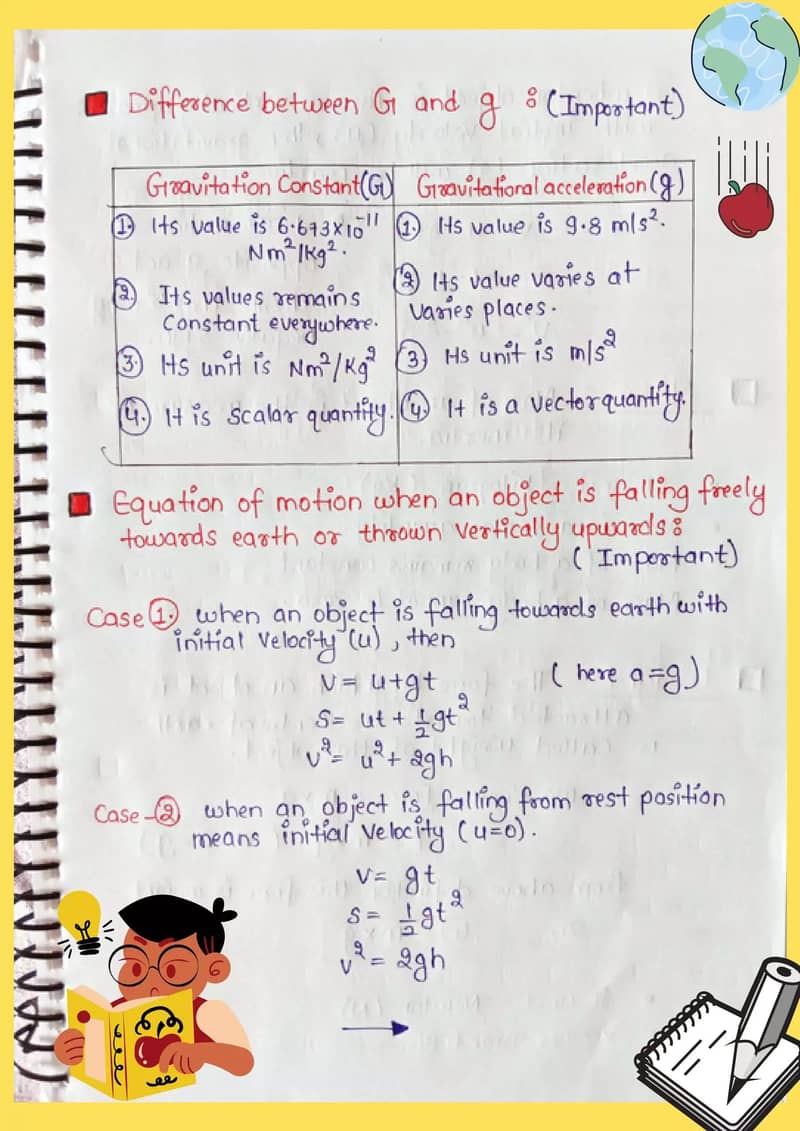 Difference between G and g : (Important)
Gravitation Constant(G)
Gravitational acceleration(g)
1. Its value is 6.673×10⁻¹¹
Nm²/Kg².
2. Its values remains
Constant everywhere.
3. Its unit is Nm²/Kg²
4. It is Scalar quantity.
1. Its value is 9.8 m/s².
2. Its value varies at
varies places.
3. Its unit is m/s²
4. It is a vector quantity.
Equation of motion when an object is falling freely
towards earth or thrown vertically upwards:
( Important)
Case 1. when an object is falling towards earth with
initial velocity (u) , then
v= u+gt ( here a=g)
s= ut + 1/2 gt²
v²= u²+ 2gh
Case -2 when an object is falling from rest position
means initial velocity (u=0).
v= gt
s= 1/2 gt²
v²= 2gh